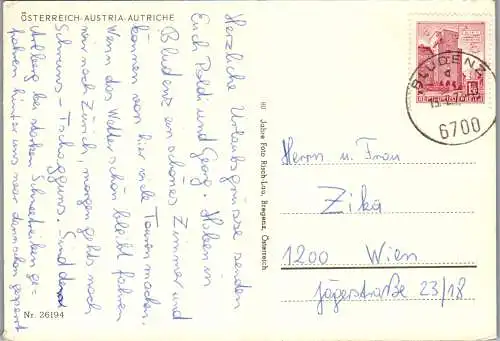 ÖSTERREICH-AUSTRIA-AUTRICHE
Herzliche Urlaubsgrüsse senden
Euch Poldi und Georg. Haben in
Bludenz ein schönes Zimmer und
können von hier viele Touren machen.
Wenn das Wetter schön bleibt fahren
wir nach Zürich, morgen gehts nach
Schruns-Tschagguns. Sind den
Arlberg bei starken Schneetreiben ge-
fahren hinter uns war dann schon gesperrt
Nr. 26194
Jahre Foto Risch-Lau, Bregenz, Österreich
BLUDENZ
6700
Herrn u. Frau
Zika
1200 Wien
Jägerstraße 23/18